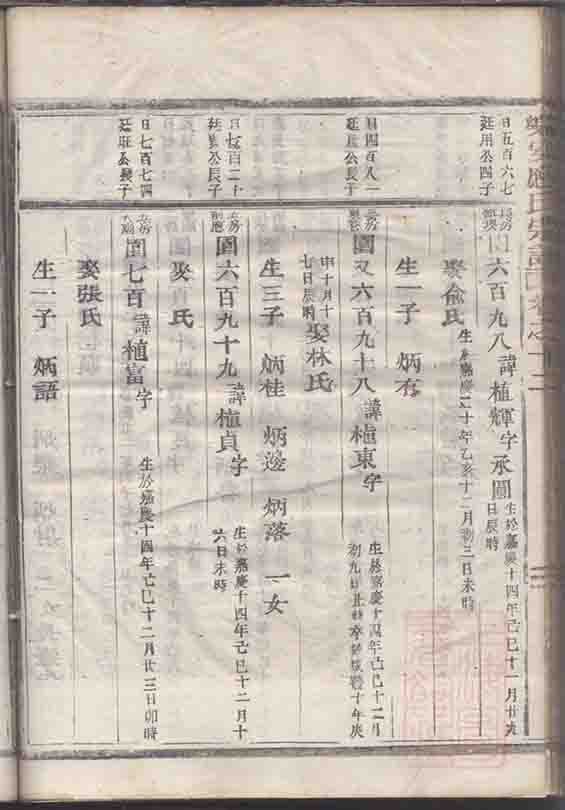 日五百六七
廷用公四子
六百九八 諱植輝 字承圖 生於嘉慶十四年己巳十一月廿六
日辰時
娶俞氏 生於嘉慶二十年乙亥十二月初三日未時
生一子 炳有
日四百八一
廷 公長子
圓又六百九十八 諱植東 字 生於嘉慶十四年己巳十二月
初九日 時卒於咸豐十年庚
申十月十
七日辰時 娶林氏
生三子 炳桂 炳邊 炳落 一女
日七百二十
廷 公長子
圓六百九十九 諱植貞 字 生於嘉慶十四年己巳十二月十
六日未時
娶 氏
日七百七四
廷旺公長子
圓七百 諱植富 字 生於嘉慶十四年己巳十二月廿三日卯時
娶張氏
生一子 炳語